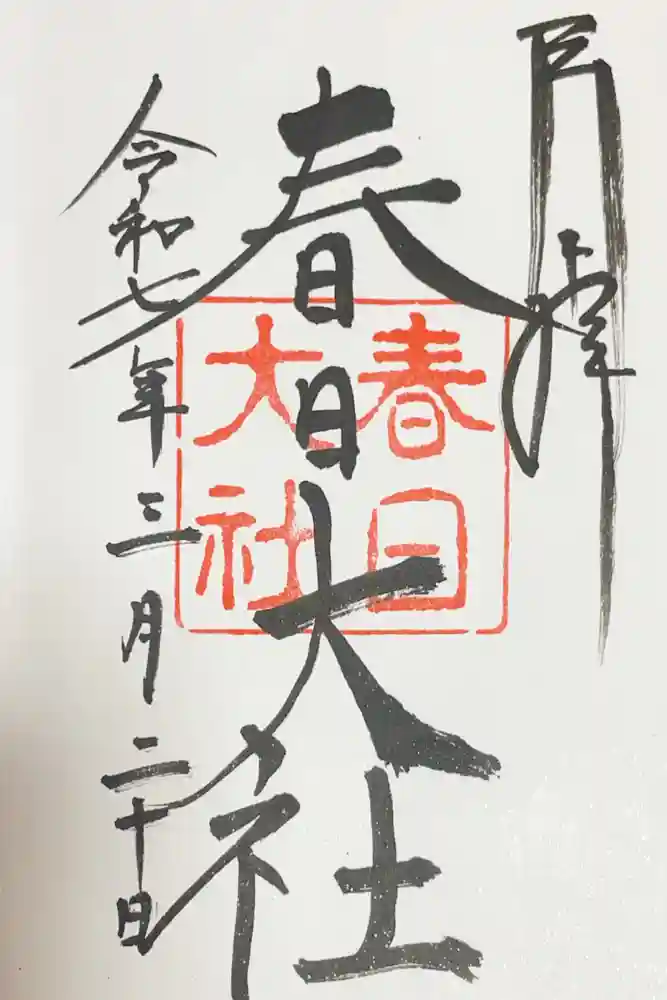 拝
春日大社
春日
大社
令和七年三月二十日